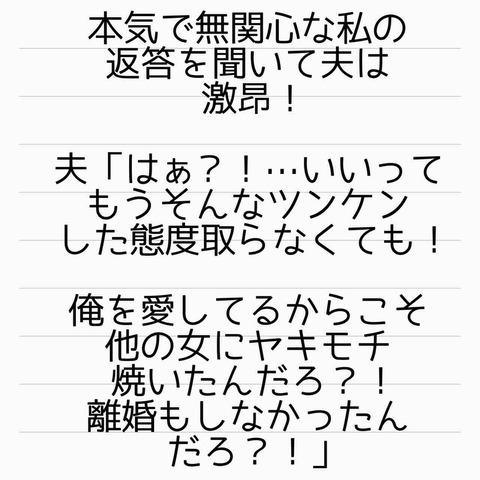 本気で無関心な私の
返答を聞いて夫は
激昂！
夫「はぁ？！…いいって
もうそんなツンケン
した態度取らなくても！
俺を愛してるからこそ
他の女にヤキモチ
焼いたんだろ？！
離婚もしなかったん
だろ？！」